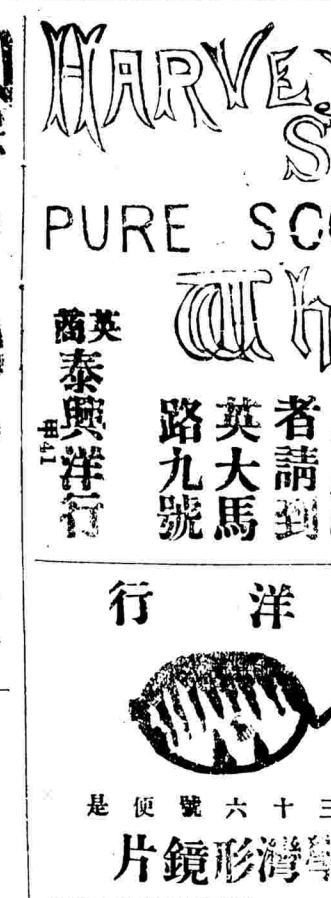 HARVE
S
PURE SC
Th
者請到
英大馬
路九號
英商
泰興洋行
甲41
洋行
三十六號便是
灣形鏡片